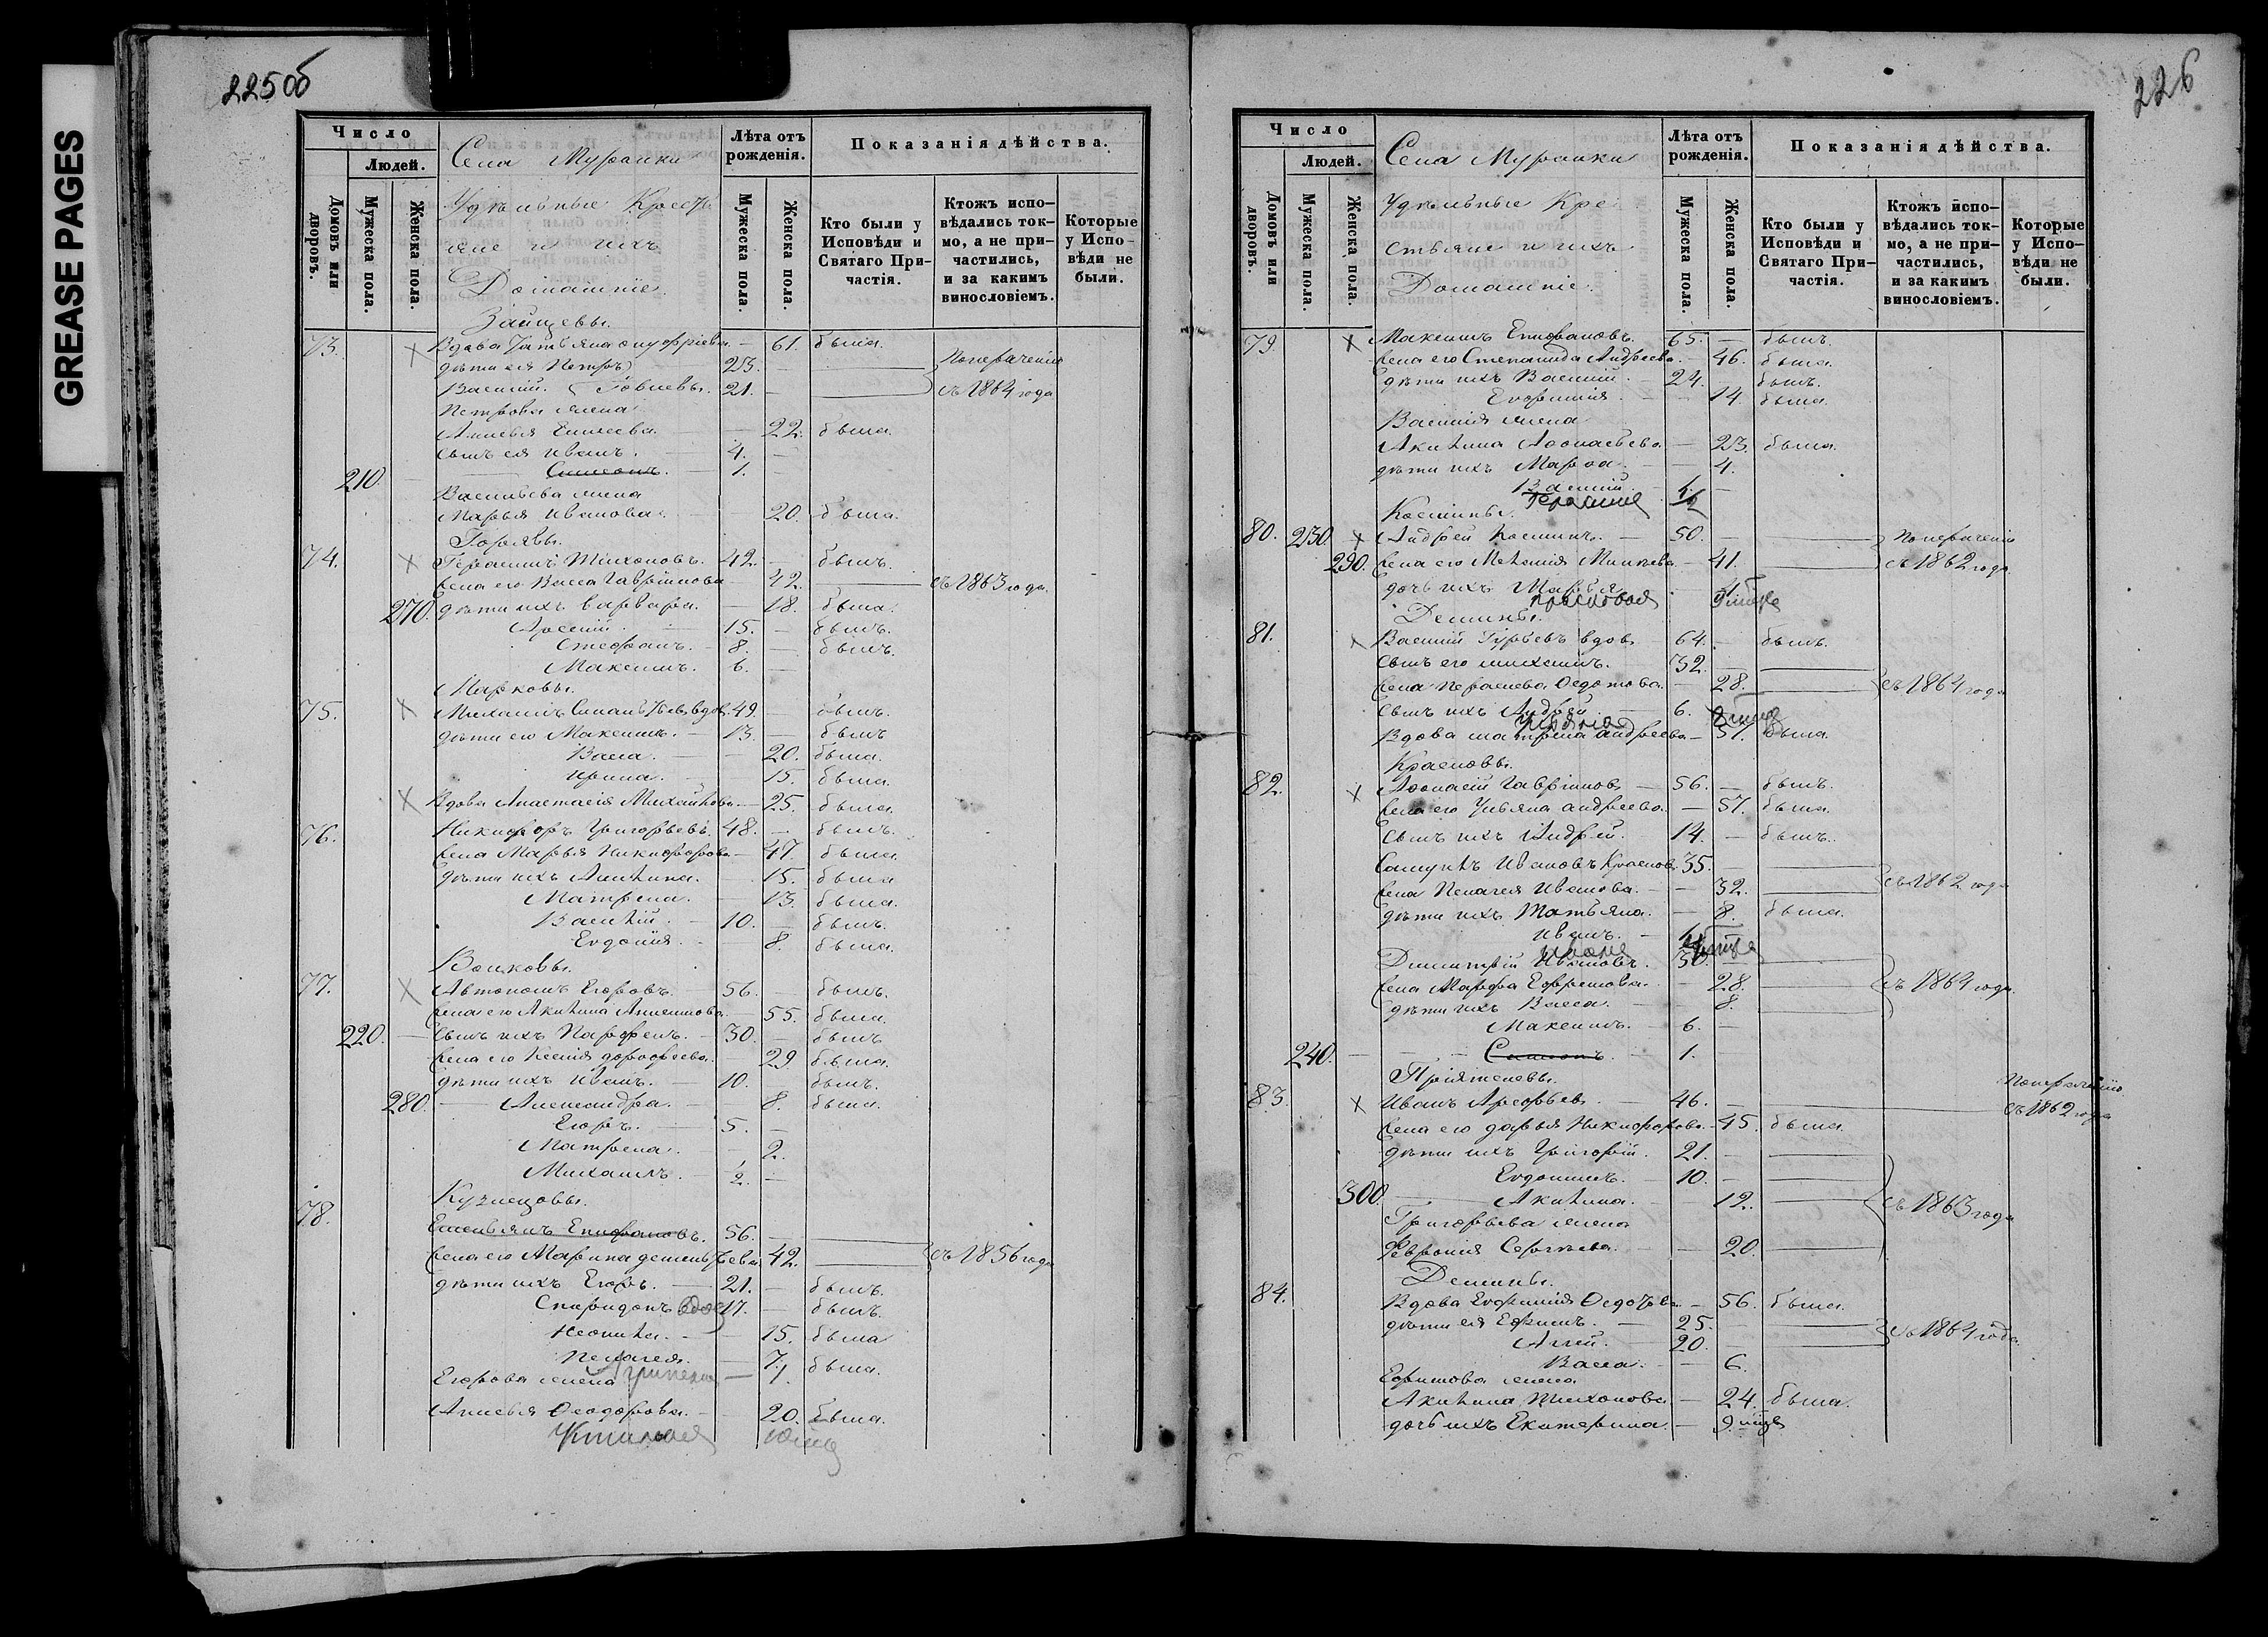 GREASE PAGES
225об
Число
Людей.
Домовъ или дворовъ.
Мужеска пола.
Женска пола.
Села Муранки
Удѣльные Крестья
не и ихъ
Домашніе.
Лѣта отъ рожденія.
Мужеска пола.
Женска пола.
Показанія дѣйства.
Кто были у Исповѣди и Святаго Причастія.
Ктожъ исповѣдались токмо, а не причастились, и за какимъ винословіемъ.
Которые у Исповѣди не были.
Зайцевы.
73. Вдова Татьяна Онуфріева — 61. была.
дѣти ея Петръ 23. —
Василій 21. — съ 1864 года
Петрова жена
22. была.
сынъ ея Иванъ. 4. —
210. Симеонъ. 1. —
Васильева жена
Марья Иванова. 20. была.
74. Герасимъ Тихоновъ. 42. — былъ.
жена его Васса Гаврилова 42. съ 1863 года.
270. дѣти ихъ Варвара. — 18. была.
Арсеній 15. — былъ.
Стефанъ. 8. — былъ.
Максимъ. 6. —
Марковы.
75. Михаилъ вдовъ 49. — былъ.
дѣти его Максимъ. — 13. — былъ
Васса. — 20. была.
Ирина. 15. была.
Вдова Анастасія Михайлова — 25. была.
76. Никифоръ Григорьевъ. 48. — былъ.
жена Марья Никифорова — 47. была.
дѣти ихъ Акилина. 15. была
Матрена. 13. была.
Василій 10. — былъ.
Евдокія. 8. была.
Волковы.
77. Автономъ Егоровъ. 56. — былъ.
жена его Акилина 55. была.
220. сынъ ихъ Парфенъ. 30. — былъ
жена его Ксенія Дорофеева. 29. была.
дѣти ихъ Иванъ. 10. — былъ.
280. Александра. — 8. была.
Егоръ. 5. —
Матрена. 2.
Михаилъ. 1/2. —
Кузнецовы.
78. Емельянъ Епифановъ. 56. —
жена его Марина Дементьева 42. съ 1856 года
дѣти ихъ Егоръ. 21. — былъ.
Спиридонъ 17. — былъ.
Неонила. 15. была
Пелагея. — 7. была.
Егорова жена
Феодорова. 20. была.
226
Число
Людей.
Домовъ или дворовъ.
Мужеска пола.
Женска пола.
Села Муранки
Удѣльные Кре
стьяне и ихъ
Домашніе.
Лѣта отъ рожденія.
Мужеска пола.
Женска пола.
Показанія дѣйства.
Кто были у Исповѣди и Святаго Причастія.
Ктожъ исповѣдались токмо, а не причастились, и за какимъ винословіемъ.
Которые у Исповѣди не были.
79. Максимъ Епифановъ. 65. — былъ.
жена его Степанида Андреева. 46. была.
дѣти ихъ Василій. 24. былъ.
14. была.
Василія жена
Акилина Афонасьева — 23. была.
дѣти ихъ Марфа. 4.
Василій. 1. —
80. 230. Андрей 50. —
290. жена его Меланія 41. съ 1862 года.
дочь ихъ Марья
Демины.
81. Василій Гурьевъ вдовъ 64. — былъ.
сынъ его 32. —
жена Федотова. 28. съ 1864 года
сынъ ихъ Андрей 6.
Вдова Матрена Андреева — 57. была.
Красновы.
82. Афонасій Гавриловъ — 56. — былъ.
жена его Ульяна Андреева. — 57. была.
сынъ ихъ Андрей. 14. — былъ.
Самуилъ Ивановъ Красновъ 35.
жена Пелагея Иванова. — 32. съ 1862 года
дѣти ихъ Татьяна. — 8. была.
Иванъ.
Димитрій Ивановъ. 30. —
жена Марфа Ефремова. 28. съ 1864 года.
дѣти ихъ Васса. 8.
Максимъ. — 6. —
240. — 1.
Пріятелевы.
83. Иванъ Арефьевъ. — 46. — съ 1862 года
жена его Дарья Никифорова — 45. была.
дѣти ихъ Григорій. 21. —
Евдокимъ. 10. —
300. Акилина. 12. съ 1863 года
Григорьева жена
Февронія Сергѣева. — 20.
Демины.
84. Вдова Федотова — 56. была.
дѣти ея Ефимъ. — 25. —
20. — съ 1864 года.
Васса. — 6.
Ефимова жена
Акилина Тихонова — 24. была.
дочь ихъ Екатерина. — 9.